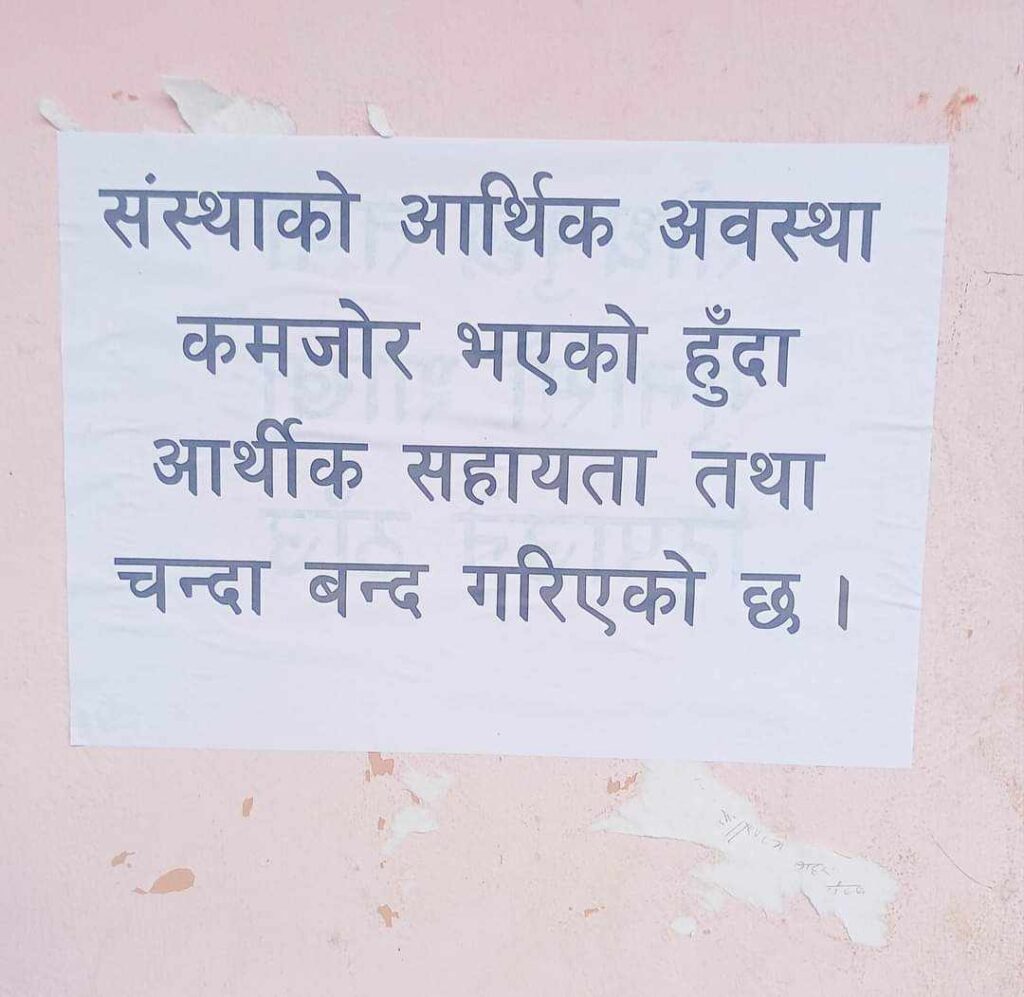 संस्थाको आर्थिक अवस्था
कमजोर भएको हुँदा
आर्थीक सहायता तथा
चन्दा बन्द गरिएको छ ।